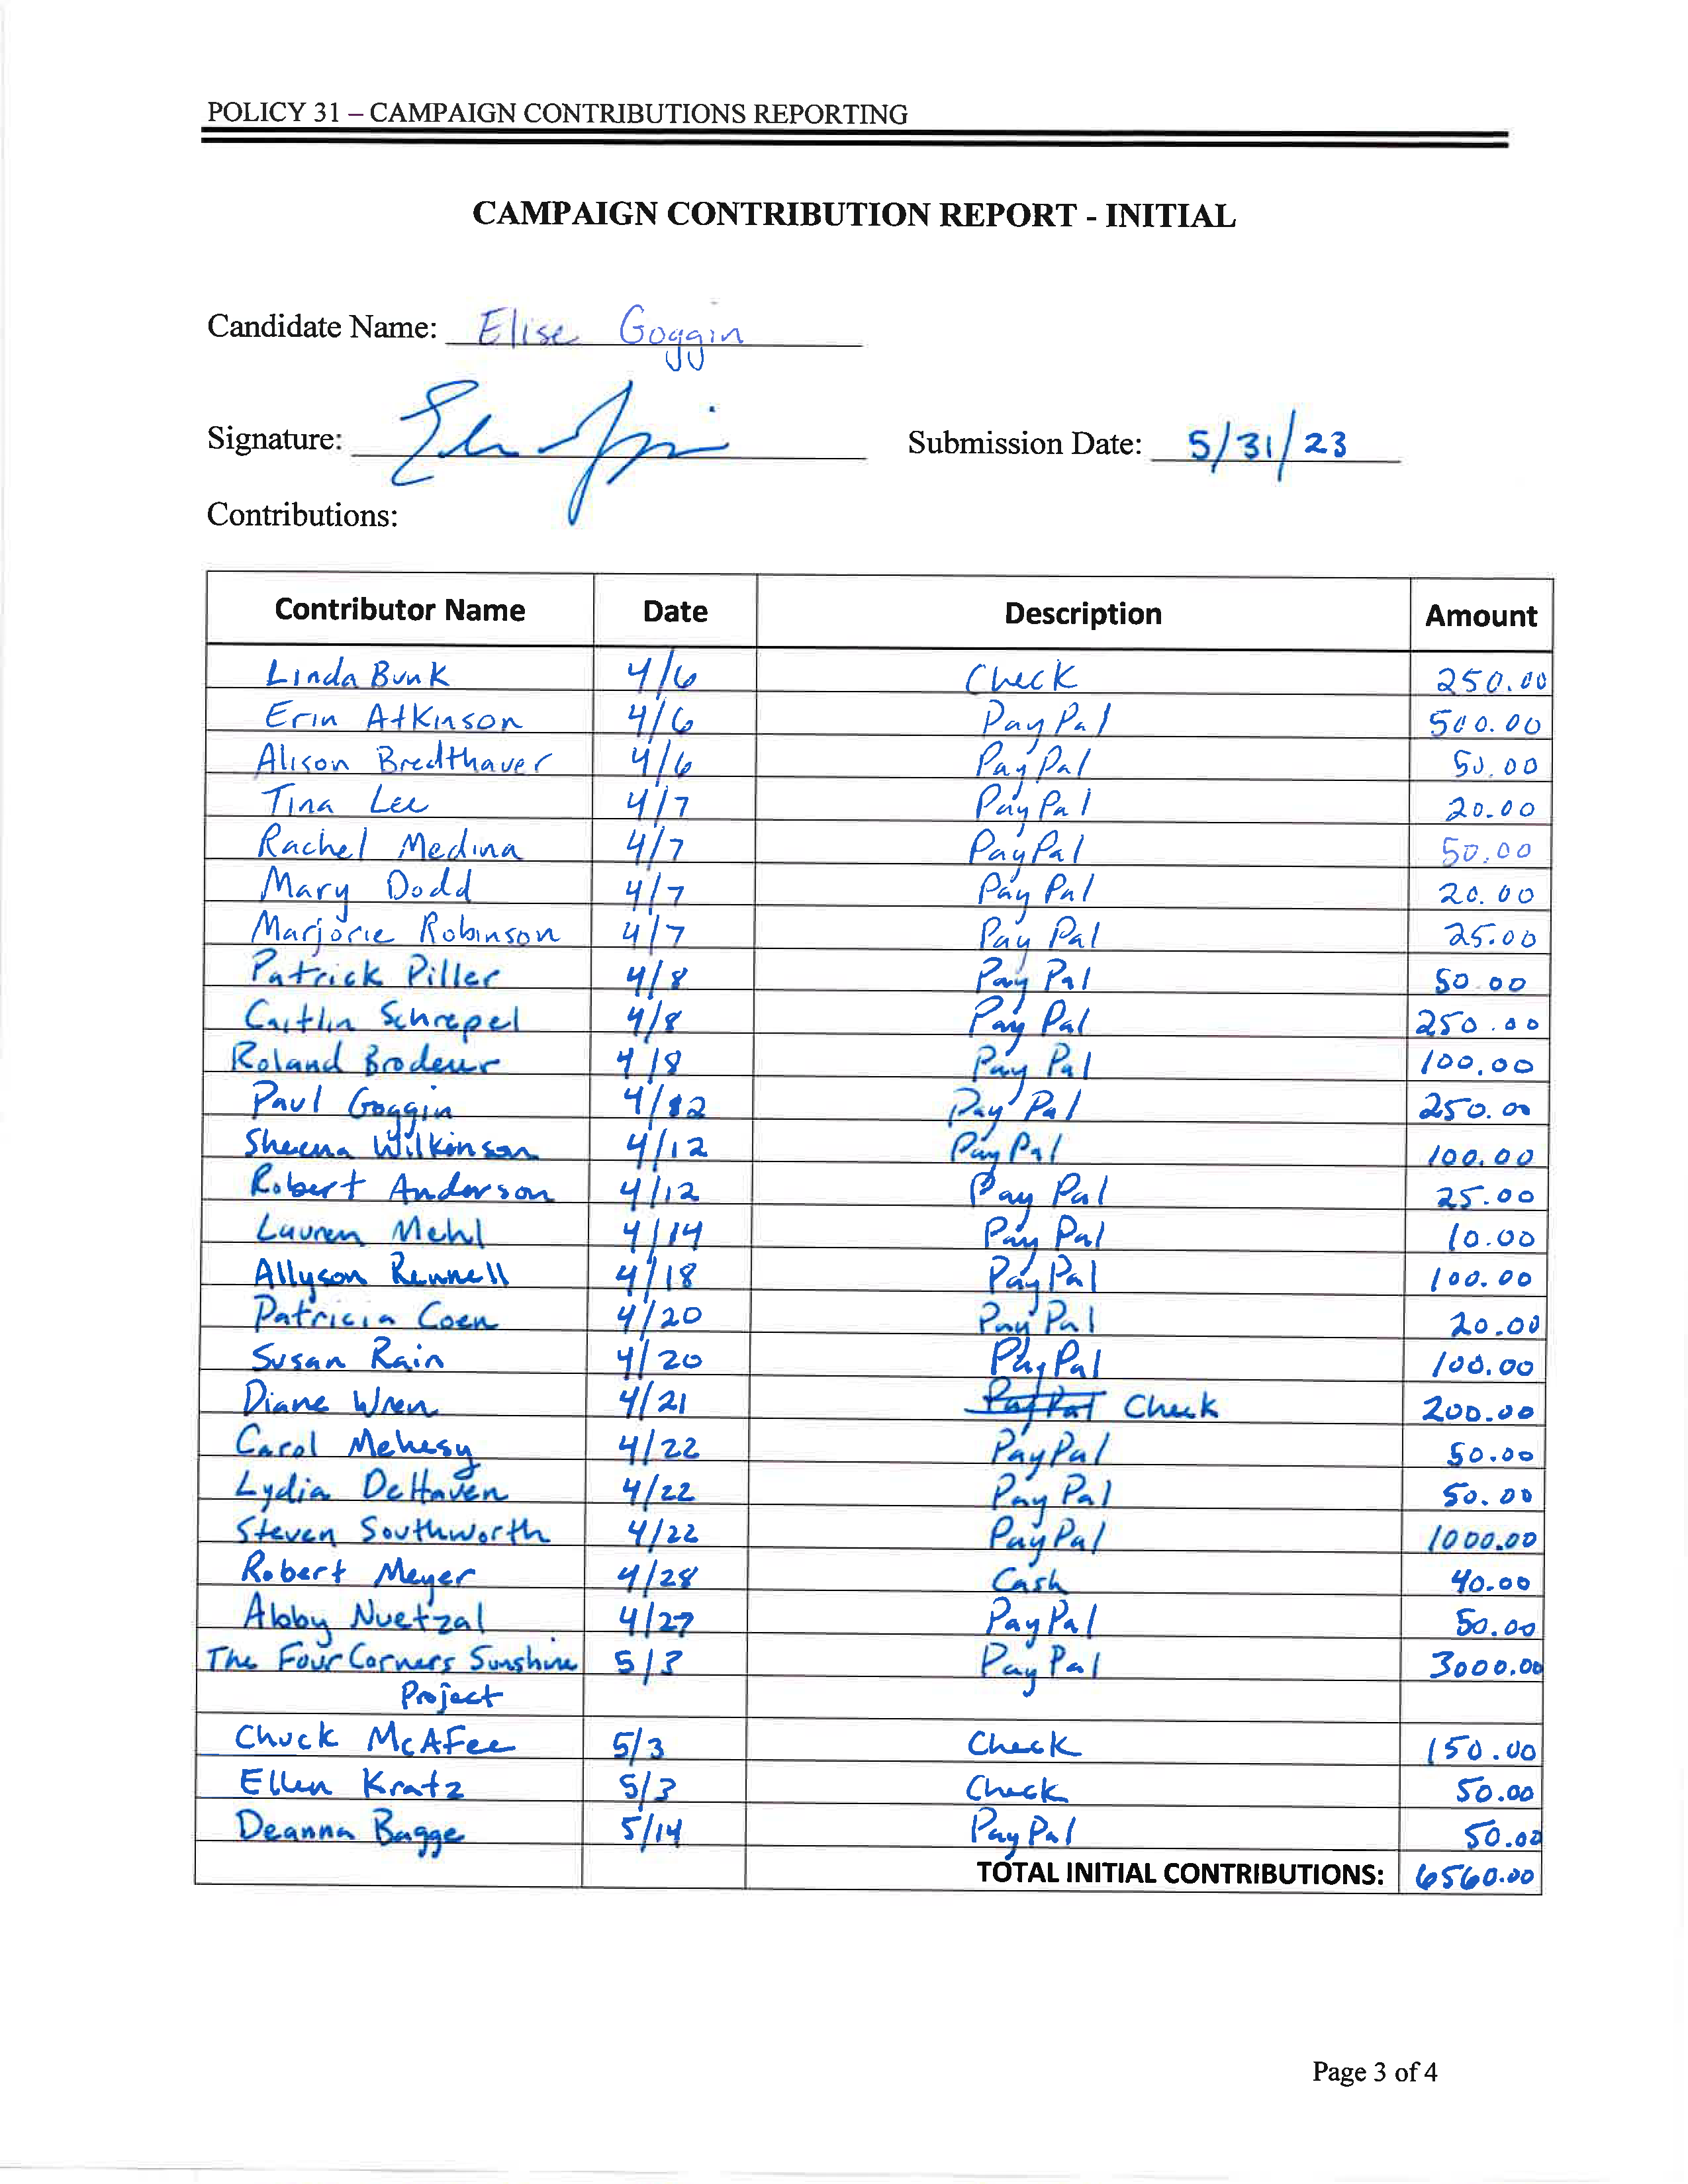 POLICY 31 – CAMPAIGN CONTRIBUTIONS REPORTING
CAMPAIGN CONTRIBUTION REPORT - INITIAL
Candidate Name: Elise Goggin
Signature: Submission Date: 5/31/23
Contributions:
Contributor Name Date Description Amount
Linda Bunk 4/6 Check 250.00
Erin Atkinson 4/6 PayPal 500.00
Alison Bredthauer 4/6 PayPal 50.00
Tina Lee 4/7 PayPal 20.00
Rachel Medina 4/7 PayPal 50.00
Mary Dodd 4/7 Pay Pal 20.00
Marjorie Robinson 4/7 Pay Pal 25.00
Patrick Piller 4/8 Pay Pal 50.00
Caitlin Schrepel 4/8 Pay Pal 250.00
Roland Brodeur 4/8 Pay Pal 100.00
Paul Goggin 4/12 Pay Pal 250.00
Sheena Wilkinson 4/12 PayPal 100.00
Robert Anderson 4/12 Pay Pal 25.00
Lauren Mehl 4/14 Pay Pal 10.00
Allyson Rennell 4/18 PayPal 100.00
Patricia Coen 4/20 PayPal 20.00
Susan Rain 4/20 PayPal 100.00
Diane Wren 4/21 PayPal Check 200.00
Carol Mehesy 4/22 PayPal 50.00
Lydia DeHaven 4/22 PayPal 50.00
Steven Southworth 4/22 PayPal 1000.00
Robert Meyer 4/28 Cash 40.00
Abby Nuetzal 4/27 PayPal 50.00
The Four Corners Sunshine 5/3 PayPal 3000.00
Project
Chuck McAFee 5/3 Check 150.00
Ellen Kratz 5/3 Check 50.00
Deanna Bagge 5/14 PayPal 50.00
TOTAL INITIAL CONTRIBUTIONS: 6560.00
Page 3 of 4